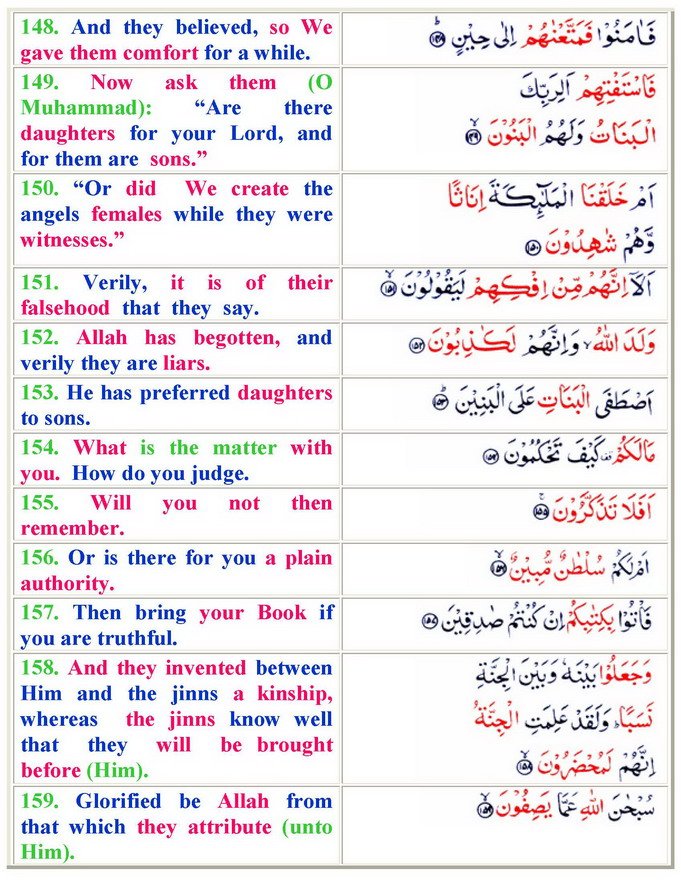 148. And they believed, so We
gave them comfort for a while.
فَاٰمَنُوْا فَمَتَّعْنٰهُمْ اِلٰى حِيْنٍ ۱۴۸
149. Now ask them (O
Muhammad): “Are there
daughters for your Lord, and
for them are sons.”
فَاسْتَفْتِهِمْ اَلِرَبِّكَ
الْبَنَاتُ وَلَهُمُ الْبَنُوْنَ ۱۴۹
150. “Or did We create the
angels females while they were
witnesses.”
اَمْ خَلَقْنَا الْمَلٰٓئِكَةَ اِنَاثًا
وَّهُمْ شٰهِدُوْنَ ۱۵۰
151. Verily, it is of their
falsehood that they say.
اَلَاۤ اِنَّهُمْ مِّنْ اِفْكِهِمْ لَيَقُوْلُوْنَ ۱۵۱
152. Allah has begotten, and
verily they are liars.
وَلَدَ اللّٰهُ وَاِنَّهُمْ لَكٰذِبُوْنَ ۱۵۲
153. He has preferred daughters
to sons.
اَصْطَفَى الْبَنَاتِ عَلَى الْبَنِيْنَ ۱۵۳
154. What is the matter with
you. How do you judge.
مَالَكُمْ كَيْفَ تَحْكُمُوْنَ ۱۵۴
155. Will you not then
remember.
اَفَلَا تَذَكَّرُوْنَ ۱۵۵
156. Or is there for you a plain
authority.
اَمْ لَكُمْ سُلْطٰنٌ مُّبِيْنٌ ۱۵۶
157. Then bring your Book if
you are truthful.
فَاْتُوْا بِكِتٰبِكُمْ اِنْ كُنْتُمْ صٰدِقِيْنَ ۱۵۷
158. And they invented between
Him and the jinns a kinship,
whereas the jinns know well
that they will be brought
before (Him).
وَجَعَلُوْا بَيْنَهٗ وَبَيْنَ الْجِنَّةِ
نَسَبًا وَلَقَدْ عَلِمَتِ الْجِنَّةُ
اِنَّهُمْ لَمُحْضَرُوْنَ ۱۵۸
159. Glorified be Allah from
that which they attribute (unto
Him).
سُبْحٰنَ اللّٰهِ عَمَّا يَصِفُوْنَ ۱۵۹